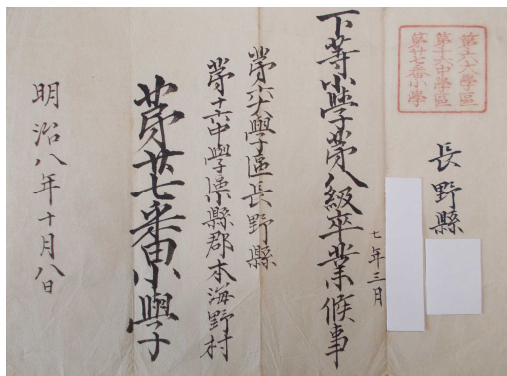 第六大學區
第十六中學區
第廿七番小學
長野縣
七年三月
下等小學第八級卒業候事
第六大學區長野縣
第十六中學區小縣郡本海野村
第廿七番小學
明治八年十月八日